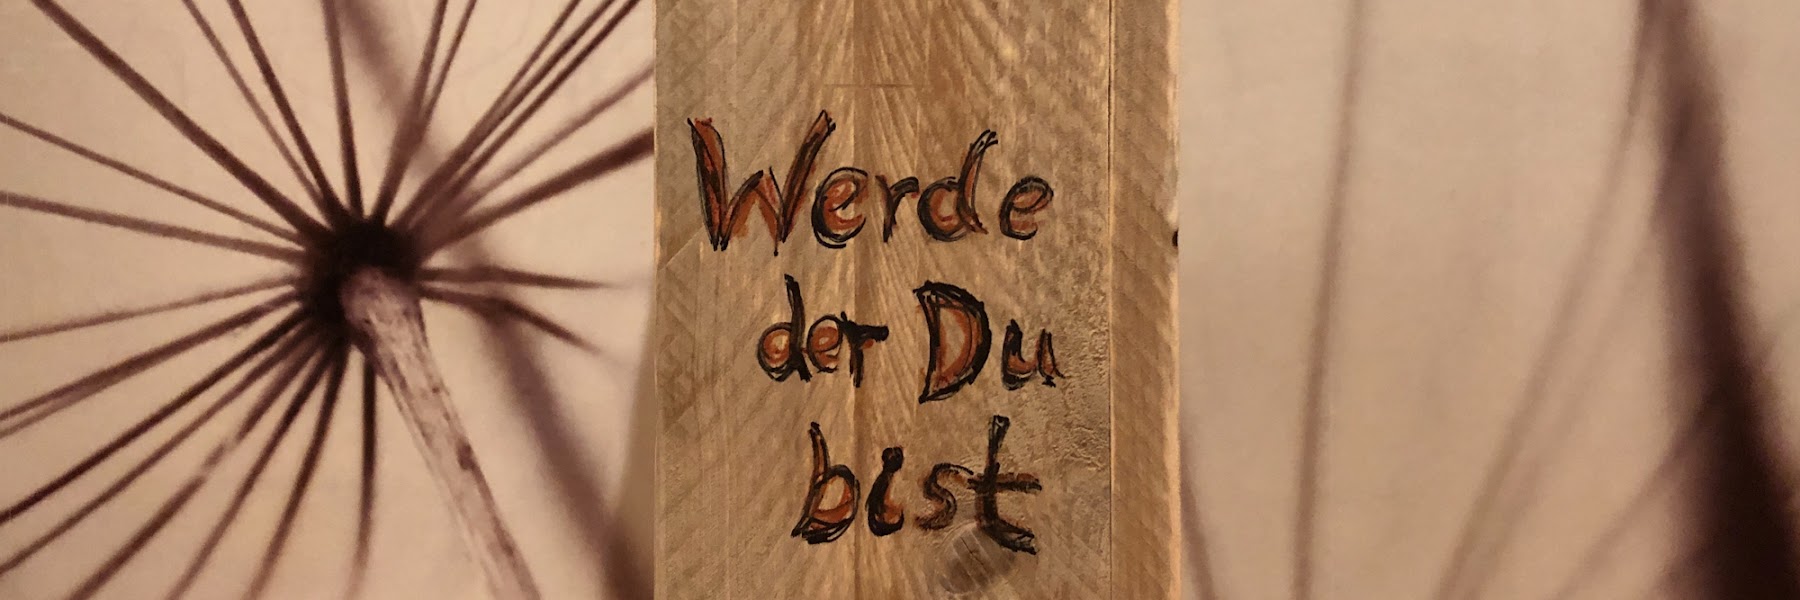 Werde
der Du
bist